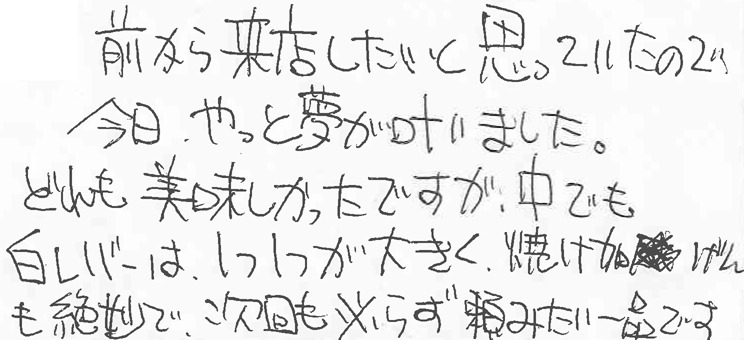 前から来店したいと思っていたので
今日、やっと夢が叶いました。
どれも美味しかったですが、中でも
白レバーは、1つ1つが大きく、焼け加げん
も絶妙で、次回も必らず頼みたい一品です